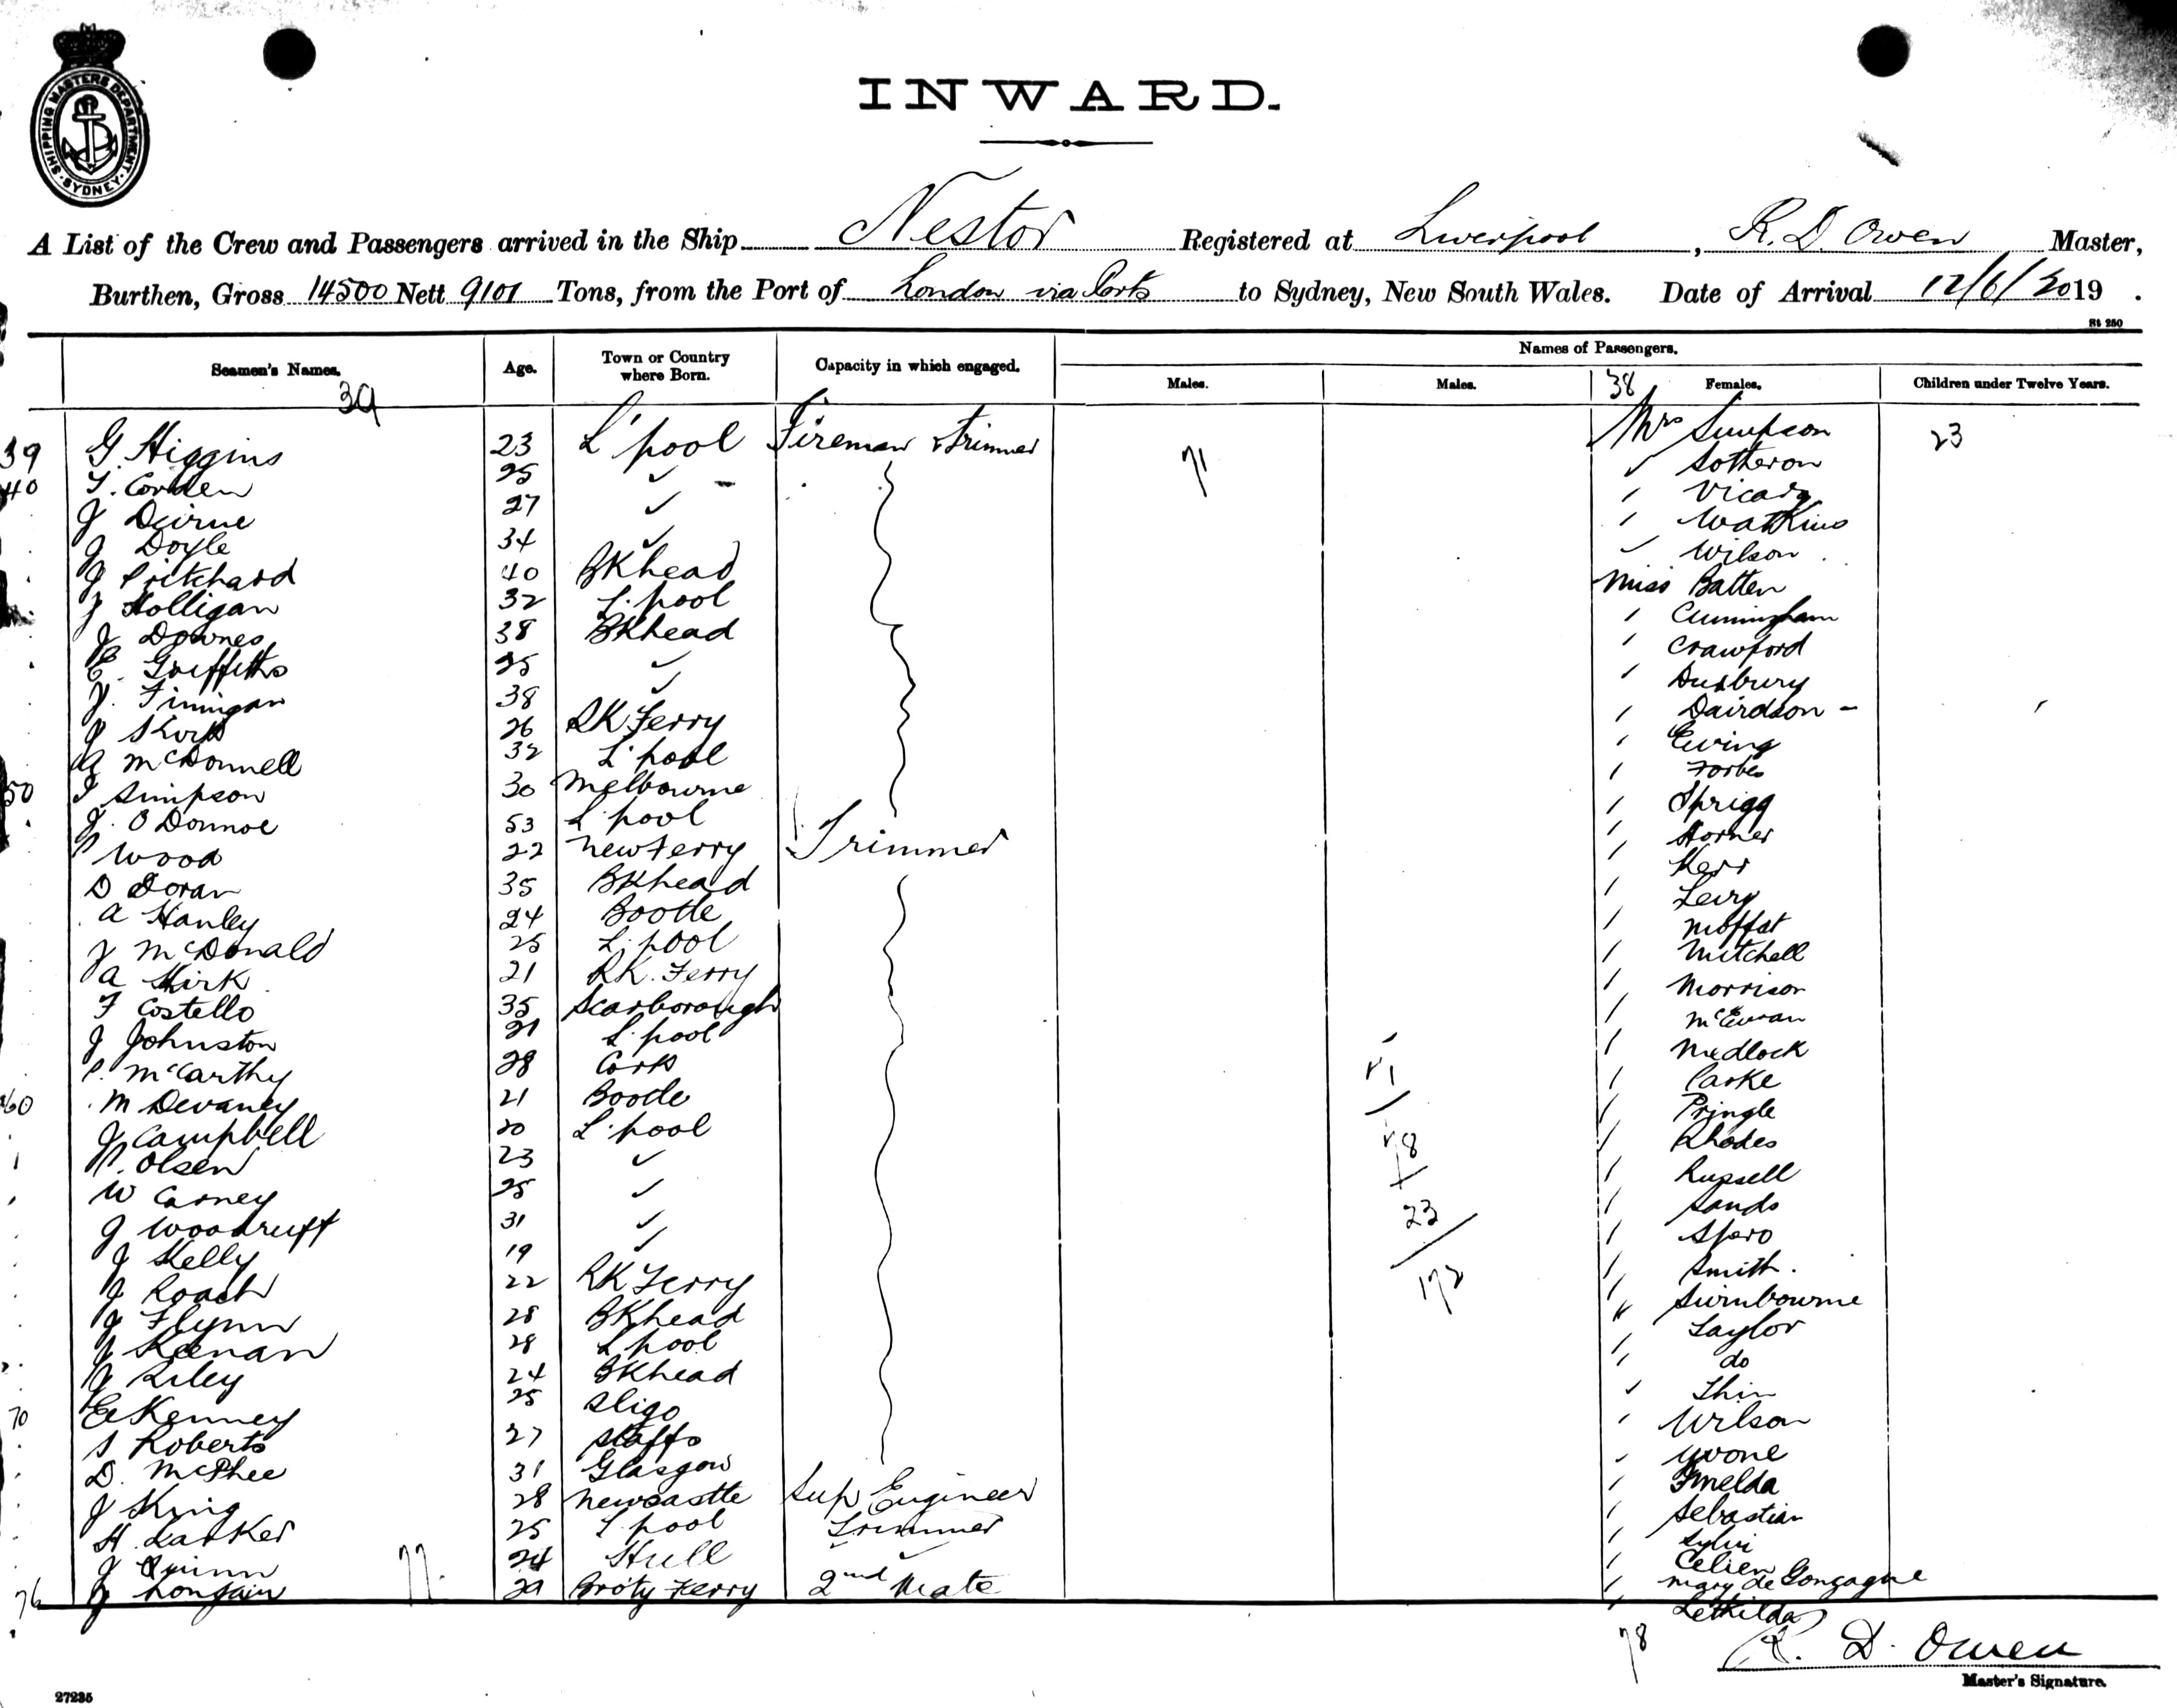 SHIPPING MASTERS DEPARTMENT
SYDNEY
INWARD.
A List of the Crew and Passengers arrived in the Ship Nestor Registered at Liverpool, R. D. Owen Master,
Burthen, Gross 14500 Nett 9101 Tons, from the Port of London via Ports to Sydney, New South Wales. Date of Arrival 12/6/2019.
St 250
Names of Passengers.
Seamen's Names. Age. Town or Country where Born. Capacity in which engaged. Males. Males. Females. Children under Twelve Years.
39 38
39 G Higgins 23 L'pool Fireman & Trimmer 71 Mrs Simpson 23
40 T. Corden 25 " " Sotheron
J Deirne 27 " " Vicary
J Doyle 34 " " Watkins
J Pritchard 40 BKhead " Wilson
J Holligan 32 L'pool Miss Batten
J Downes 38 BKhead " Cunningham
E Griffiths 25 " " Crawford
J. Finnigan 38 " " Dusbury
J Kirk 26 RK Ferry " Davidson
A McDonnell 32 L'pool " Ewing
50 J Simpson 30 Melbourne " Forbes
J. O'Donnoe 53 L'pool " Sprigg
P Wood 22 New Ferry Trimmer " Horner
D Doran 35 BKhead " Kerr
A Hanley 24 Bootle " Levy
J McDonald 25 L'pool " Moffat
A Kirk 21 RK. Ferry " Mitchell
F Costello 35 Scarborough " Morrison
J Johnston 21 L'pool " McEwan
P. McCarthy 28 Cork " Medlock
60 M Devaney 21 Bootle " Parke
J Campbell 20 L'pool " Pringle
P. Olsen 23 " " Rhodes
W Carney 25 " " Russell
J Woodruff 31 " " Sands
J Kelly 19 " 23 " Spero
J Roach 22 RK Ferry 172 " Smith.
J Flynn 28 BKhead " Swinbourne
J Keenan 28 L'pool " Taylor
J Riley 24 BKhead " do
70 E Kenney 25 Sligo " Thin
S Roberts 27 Staffs " Wilson
D. McPhee 31 Glasgow " Yvone
J King 28 Newcastle Sup Engineer " Imelda
H. Larker 25 L'pool Trimmer " Sebastian
J Quinn 24 Hull " " Sylvi
76 J 29 Broty Ferry 2nd Mate " Celien
77 " Mary de Gonzague
" Letkilda
78 R. D. Owen
Master's Signature.
27235